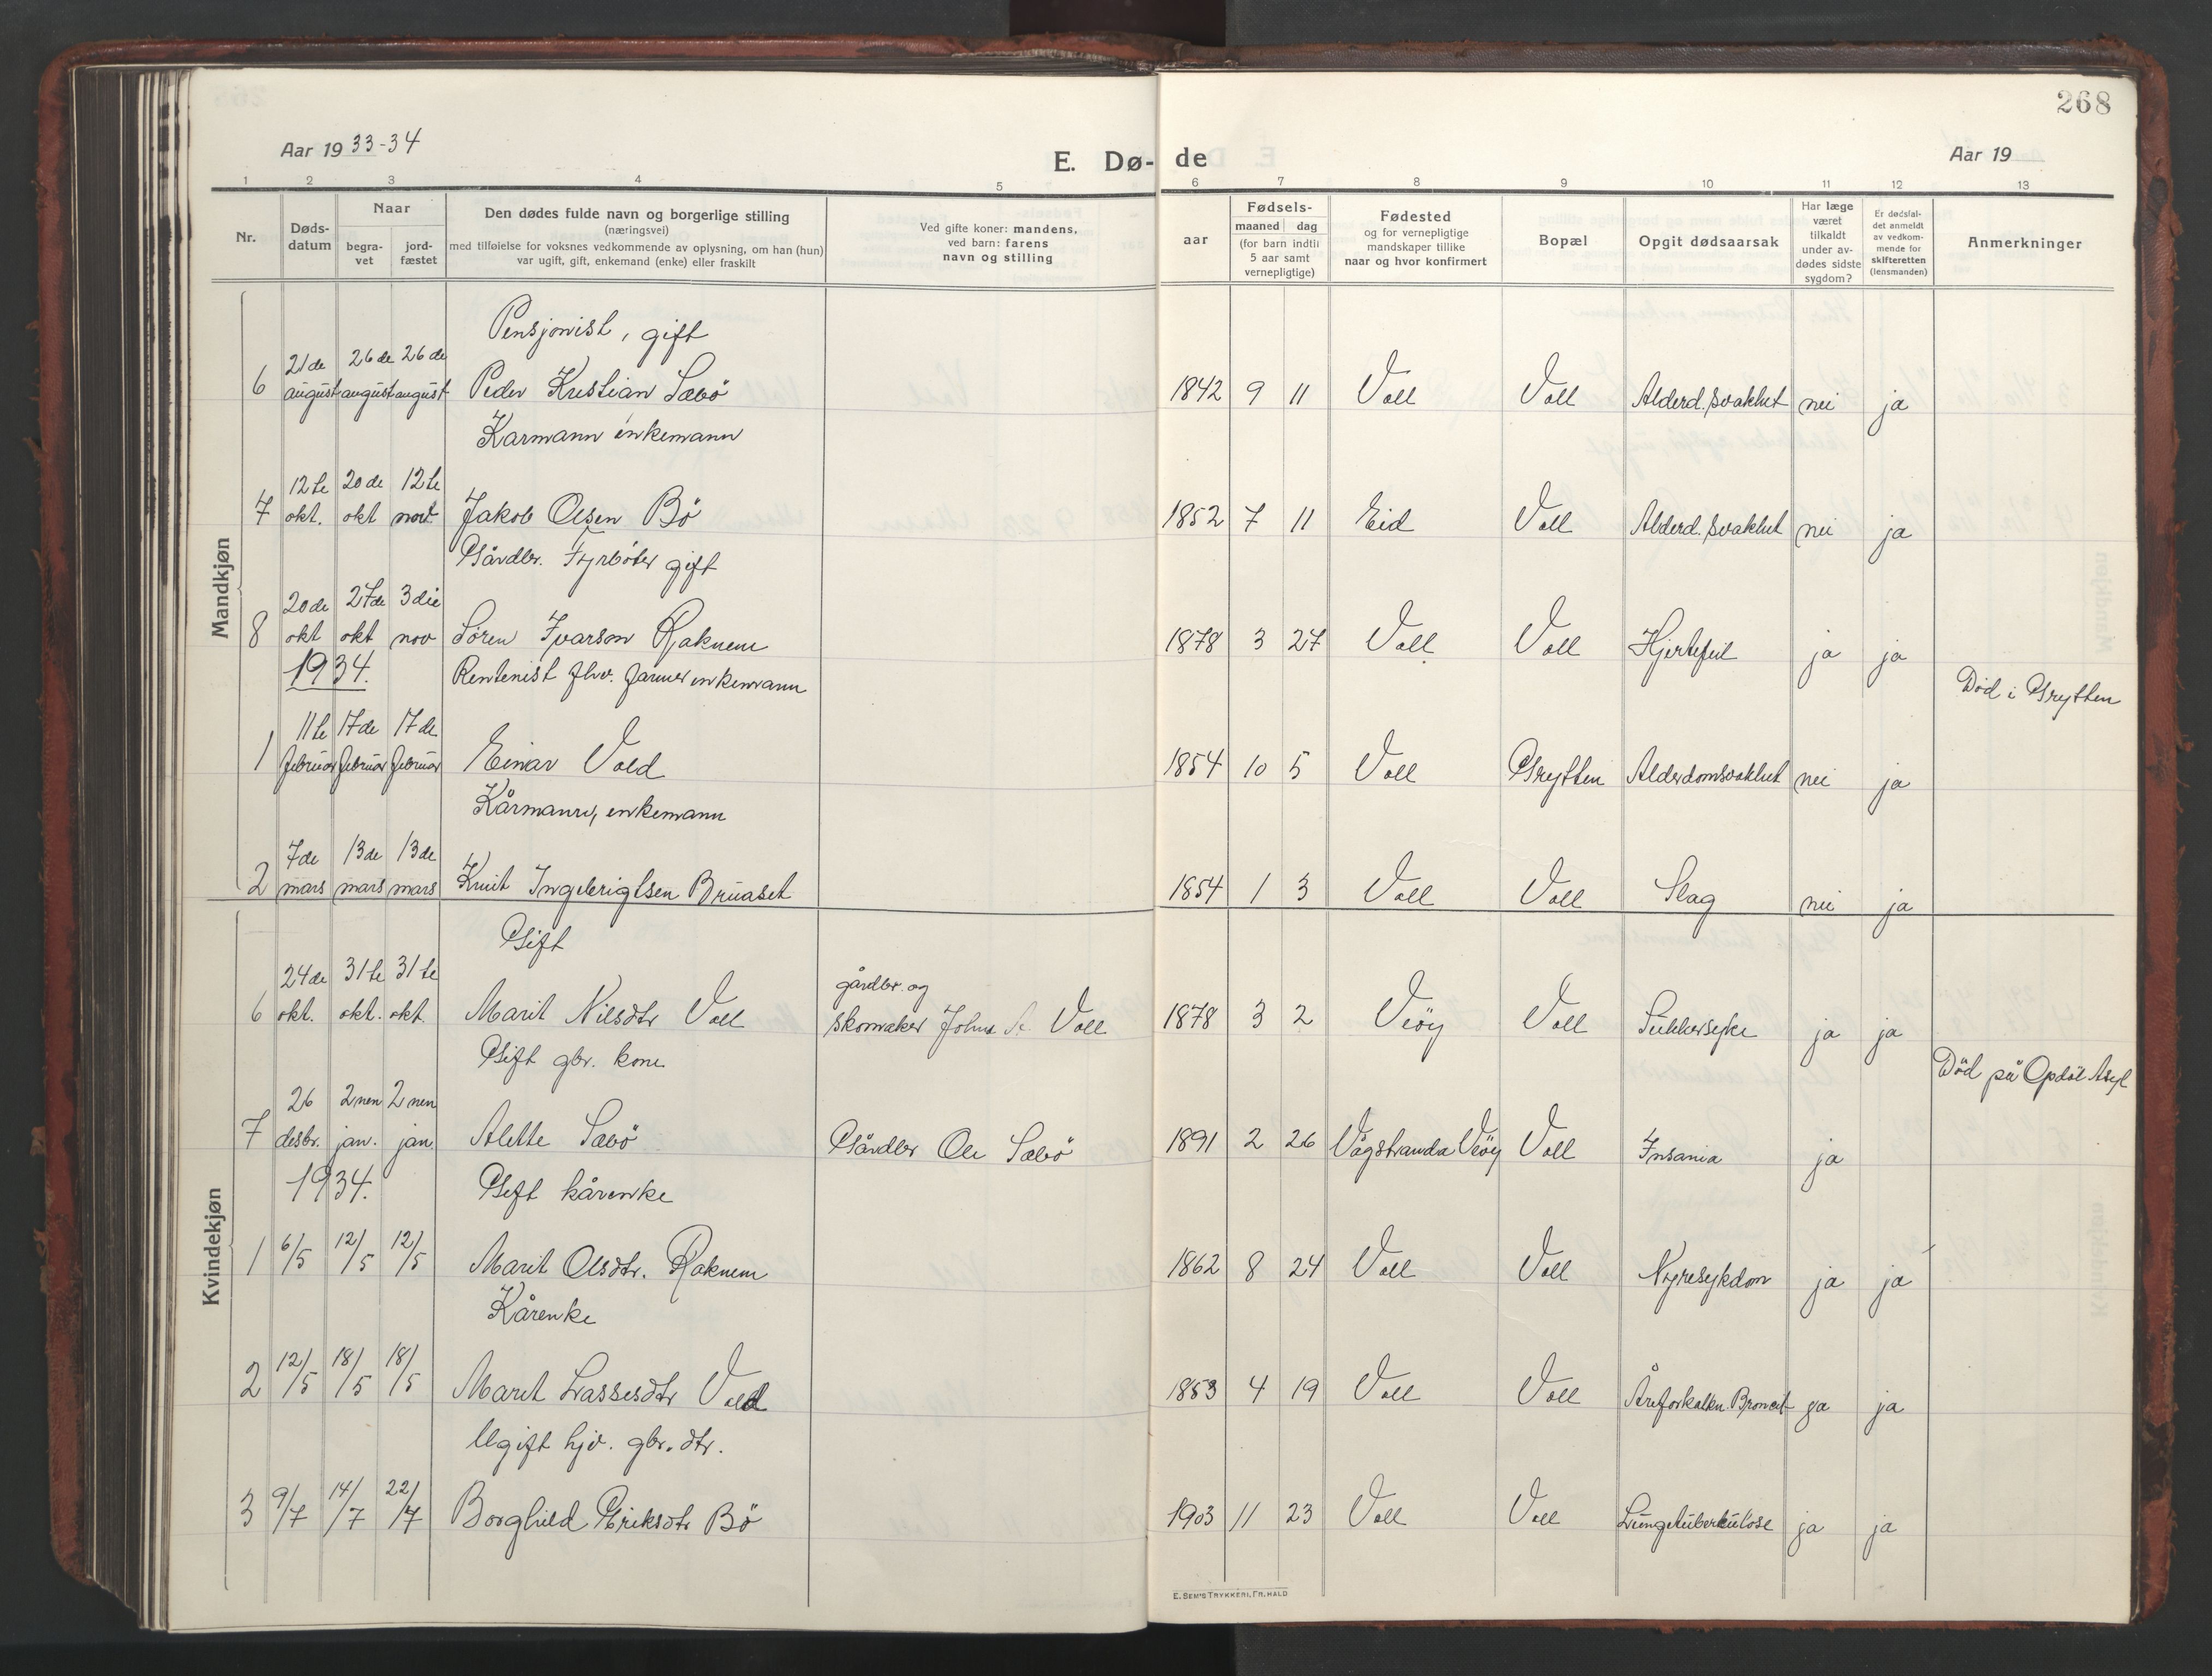 268
Aar 1933-34
E. Dø- de
Aar 19
1 2 3 4 5 6 7 8 9 10 11 12 13
Nr.
Døds-
datum
Naar
begra-
vet
jord-
fæstet
Den dødes fulde navn og borgerlige stilling
(næringsvei)
med tilføielse for voksnes vedkommende av oplysning, om han (hun)
var ugift, gift, enkemand (enke) eller fraskilt
Ved gifte koner: mandens,
ved barn: farens
navn og stilling
aar
Fødsels-
maaned dag
(for barn indtil
5 aar samt
vernepligtige)
Fødested
og for vernepligtige
mandskaper tillike
naar og hvor konfirmert
Bopæl
Opgit dødsaarsak
Har læge
været
tilkaldt
under av-
dødes sidste
sygdom?
Er dødsfal-
det anmeldt
av vedkom-
mende for
skifteretten
(lensmanden)
Anmerkninger
Mandkjøn
Pensjonist, gift
21de 26de 26de
6 august august august Peder Kristian Sæbö 1842 9 11 Voll Voll Alderd.svakhet nei ja
Karmann enkemann
12te 20de 12te
7 okt. okt nov. Jakob Olsen Bö 1852 7 11 Eid Voll Alderd.svakhet nei ja
Gårdbr. Fyrböter gift
20de 27de 3die
8 okt okt nov Sören Ivarson Raknem 1878 3 27 Voll Voll Hjertefeil ja ja
1934. Rentenist fhv. farmer enkemann
Död i Grytten
11te 17de 17de
1 februar februar februar Einar Vold 1854 10 5 Voll Grytten Alderdomsvakhet nei ja
Kårmann, enkemann
7de 13de 13de
2 mars mars mars Knut Ingebrigtsen Bruaset 1854 1 3 Voll Voll Slag nei ja
Kvindekjøn
Gift
24de 31te 31te gårdbr. og
6 okt. okt. okt. Marit Nilsdtr Voll skomaker Johns Voll 1878 3 2 Veöy Voll Sukkersyke ja ja
Gift gbr. kone
Död på Opdöl Asyl
26 2nen 2nen
7 desbr. jan. jan. Alette Sæbö Gårdbr Ole Sæbö 1891 2 26 Vågstranda Veöy Voll Insania ja
1934. Gift kårenke
1 6/5 12/5 12/5 Marit Olsdtr. Raknem 1862 8 24 Voll Voll Nyresykdom ja ja
Kårenke
2 12/5 18/5 18/5 Marit Lassesdtr Vold 1853 4 19 Voll Voll Åreforkalkn. ja ja
Ugift hjv. gbr. dtr.
3 9/7 14/7 22/7 Borghild Eriksdtr Bö 1903 11 23 Voll Voll Lungetuberkulose ja ja
E. SEM'S TRYKKERI, FR.HALD